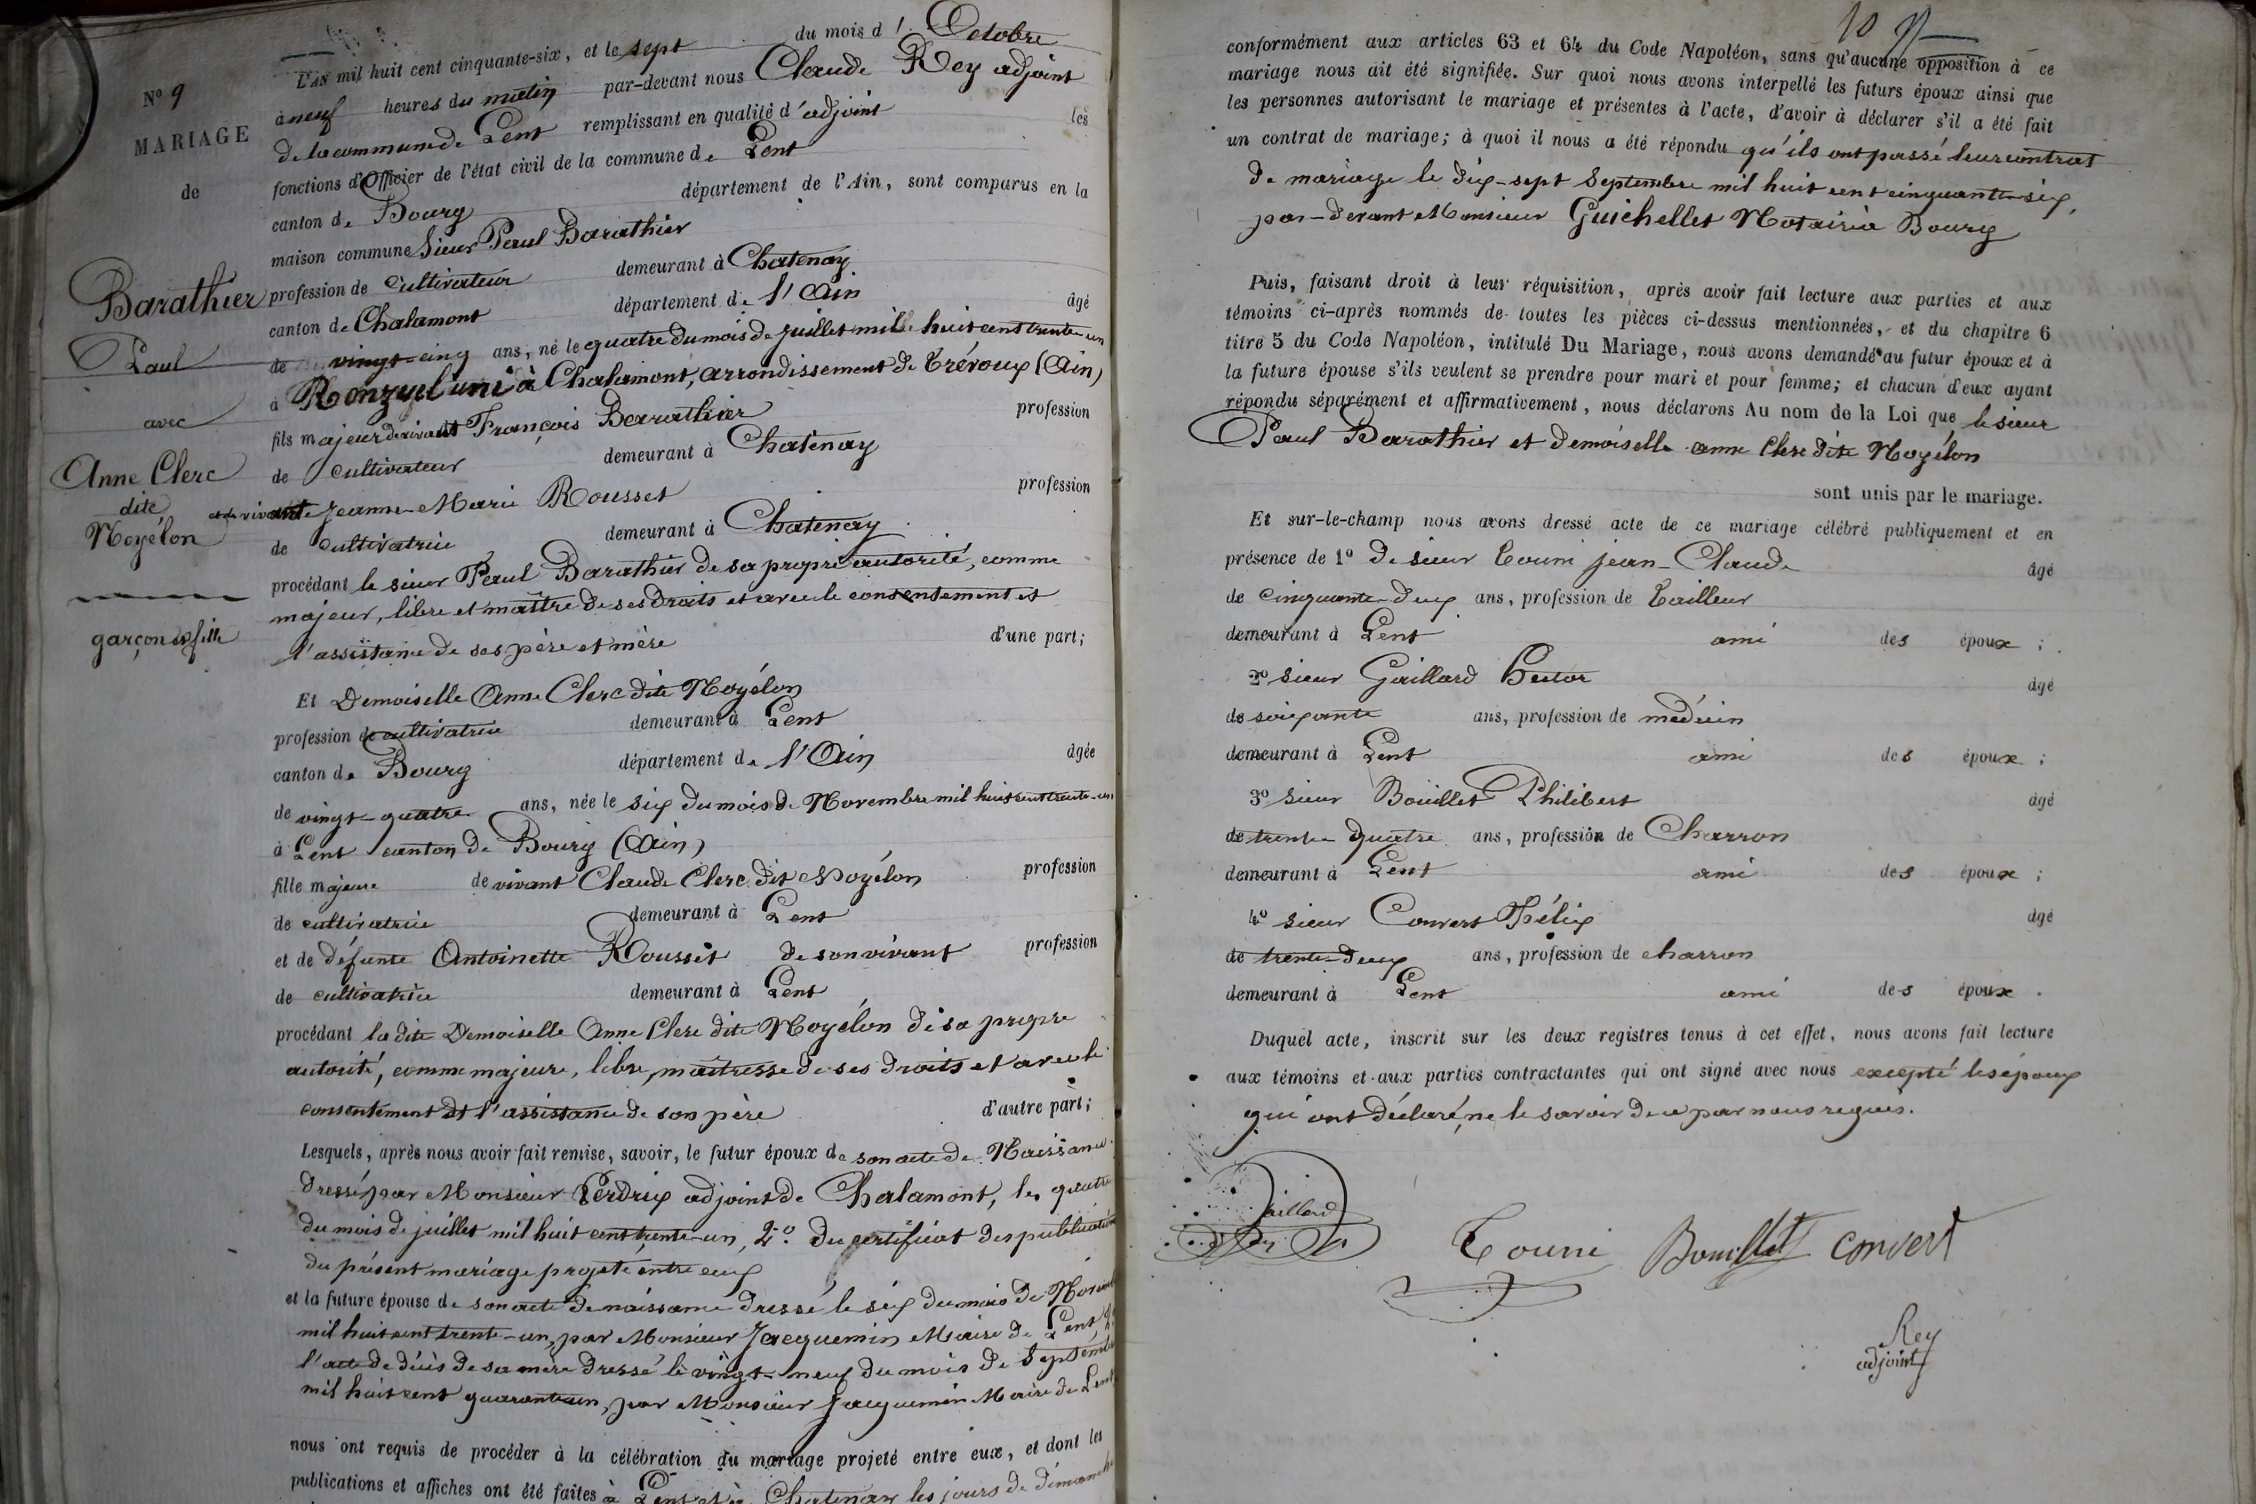 N° 9
MARIAGE
de
Barathier
Paul
avec
Anne Clerc
dite
Noyélon
garçon et fille
L'an mil huit cent cinquante-six, et le sept du mois d' Octobre
à neuf heures du matin par-devant nous Claude Rey adjoint
de la commune de Lent remplissant en qualité d'adjoint les
fonctions d'Officier de l'état civil de la commune de Lent
canton de Bourg département de l'Ain, sont comparus en la
maison commune Sieur Paul Barathier
profession de cultivateur demeurant à Chatenay
canton de Chalamont département de l'Ain âgé
de vingt-cinq ans, né le quatre du mois de juillet mil huit cent trente-un
à Ronzuel uni à Chalamont, arrondissement de Trévoux (Ain)
fils majeur de vivant François Barathier profession
de cultivateur demeurant à Chatenay
et de vivante Jeanne-Marie Rousset profession
de cultivatrice demeurant à Chatenay
procédant le sieur Paul Barathier de sa propre autorité, comme
majeur, libre et maître de ses droits et avec le consentement et
l'assistance de ses père et mère d'une part;
Et Demoiselle Anne Clerc dite Noyélon
profession de cultivatrice demeurant à Lent
canton de Bourg département de l'Ain âgée
de vingt-quatre ans, née le six du mois de Novembre mil huit cent trente-un
à Lent canton de Bourg (Ain)
fille majeure de vivant Claude Clerc dit Noyélon profession
de cultivatrice demeurant à Lent
et de défunte Antoinette Rousset de son vivant profession
de cultivatrice demeurant à Lent
procédant la dite Demoiselle Anne Clerc dite Noyélon de sa propre
autorité, comme majeure, libre, maîtresse de ses droits et avec le
consentement et l'assistance de son père d'autre part;
Lesquels, après nous avoir fait remise, savoir, le futur époux de son acte de Naissance
dressé par Monsieur Perdrix adjoint de Chalamont, le quatre
du mois de juillet mil huit cent trente-un, 2° du certificat des publications
du présent mariage projeté entre eux
et la future épouse de son acte de naissance dressé le six du mois de Novembre
mil huit cent trente-un, par Monsieur Jacquemin Maire de Lent
l'acte de décès de sa mère dressé le vingt-neuf du mois de Septembre
mil huit cent quarante-un, par Monsieur Jacquemin Maire de Lent
nous ont requis de procéder à la célébration du mariage projeté entre eux, et dont les
publications et affiches ont été faites à Lent et à Chatenay les jours de dimanche
10
conformément aux articles 63 et 64 du Code Napoléon, sans qu'aucune opposition à ce
mariage nous ait été signifiée. Sur quoi nous avons interpellé les futurs époux ainsi que
les personnes autorisant le mariage et présentes à l'acte, d'avoir à déclarer s'il a été fait
un contrat de mariage; à quoi il nous a été répondu qu'ils ont passé leur contrat
de mariage le dix-sept Septembre mil huit cent cinquante-six,
par-devant Monsieur Guichellet Notaire à Bourg
Puis, faisant droit à leur réquisition, après avoir fait lecture aux parties et aux
témoins ci-après nommés de toutes les pièces ci-dessus mentionnées, et du chapitre 6
titre 5 du Code Napoléon, intitulé Du Mariage, nous avons demandé au futur époux et à
la future épouse s'ils veulent se prendre pour mari et pour femme; et chacun d'eux ayant
répondu séparément et affirmativement, nous déclarons Au nom de la Loi que le sieur
Paul Barathier et Demoiselle anne Clerc dite Noyélon
sont unis par le mariage.
Et sur-le-champ nous avons dressé acte de ce mariage célébré publiquement et en
présence de 1° de sieur Tourni Jean-Claude âgé
de cinquante-deux ans, profession de Tailleur
demeurant à Lent ami des époux ;
2° sieur Gaillard Hector âgé
de soixante ans, profession de médecin
demeurant à Lent ami des époux ;
3° sieur Bouillet Philibert âgé
de trente-quatre ans, profession de Charron
demeurant à Lent ami des époux ;
4° sieur Convert Félix âgé
de trente-deux ans, profession de charron
demeurant à Lent ami des époux .
Duquel acte, inscrit sur les deux registres tenus à cet effet, nous avons fait lecture
aux témoins et aux parties contractantes qui ont signé avec nous excepté les époux
qui ont déclaré, ne le savoir de ce par nous requis.
Gaillard
Tourni Bouillet Convert
Rey
adjoint